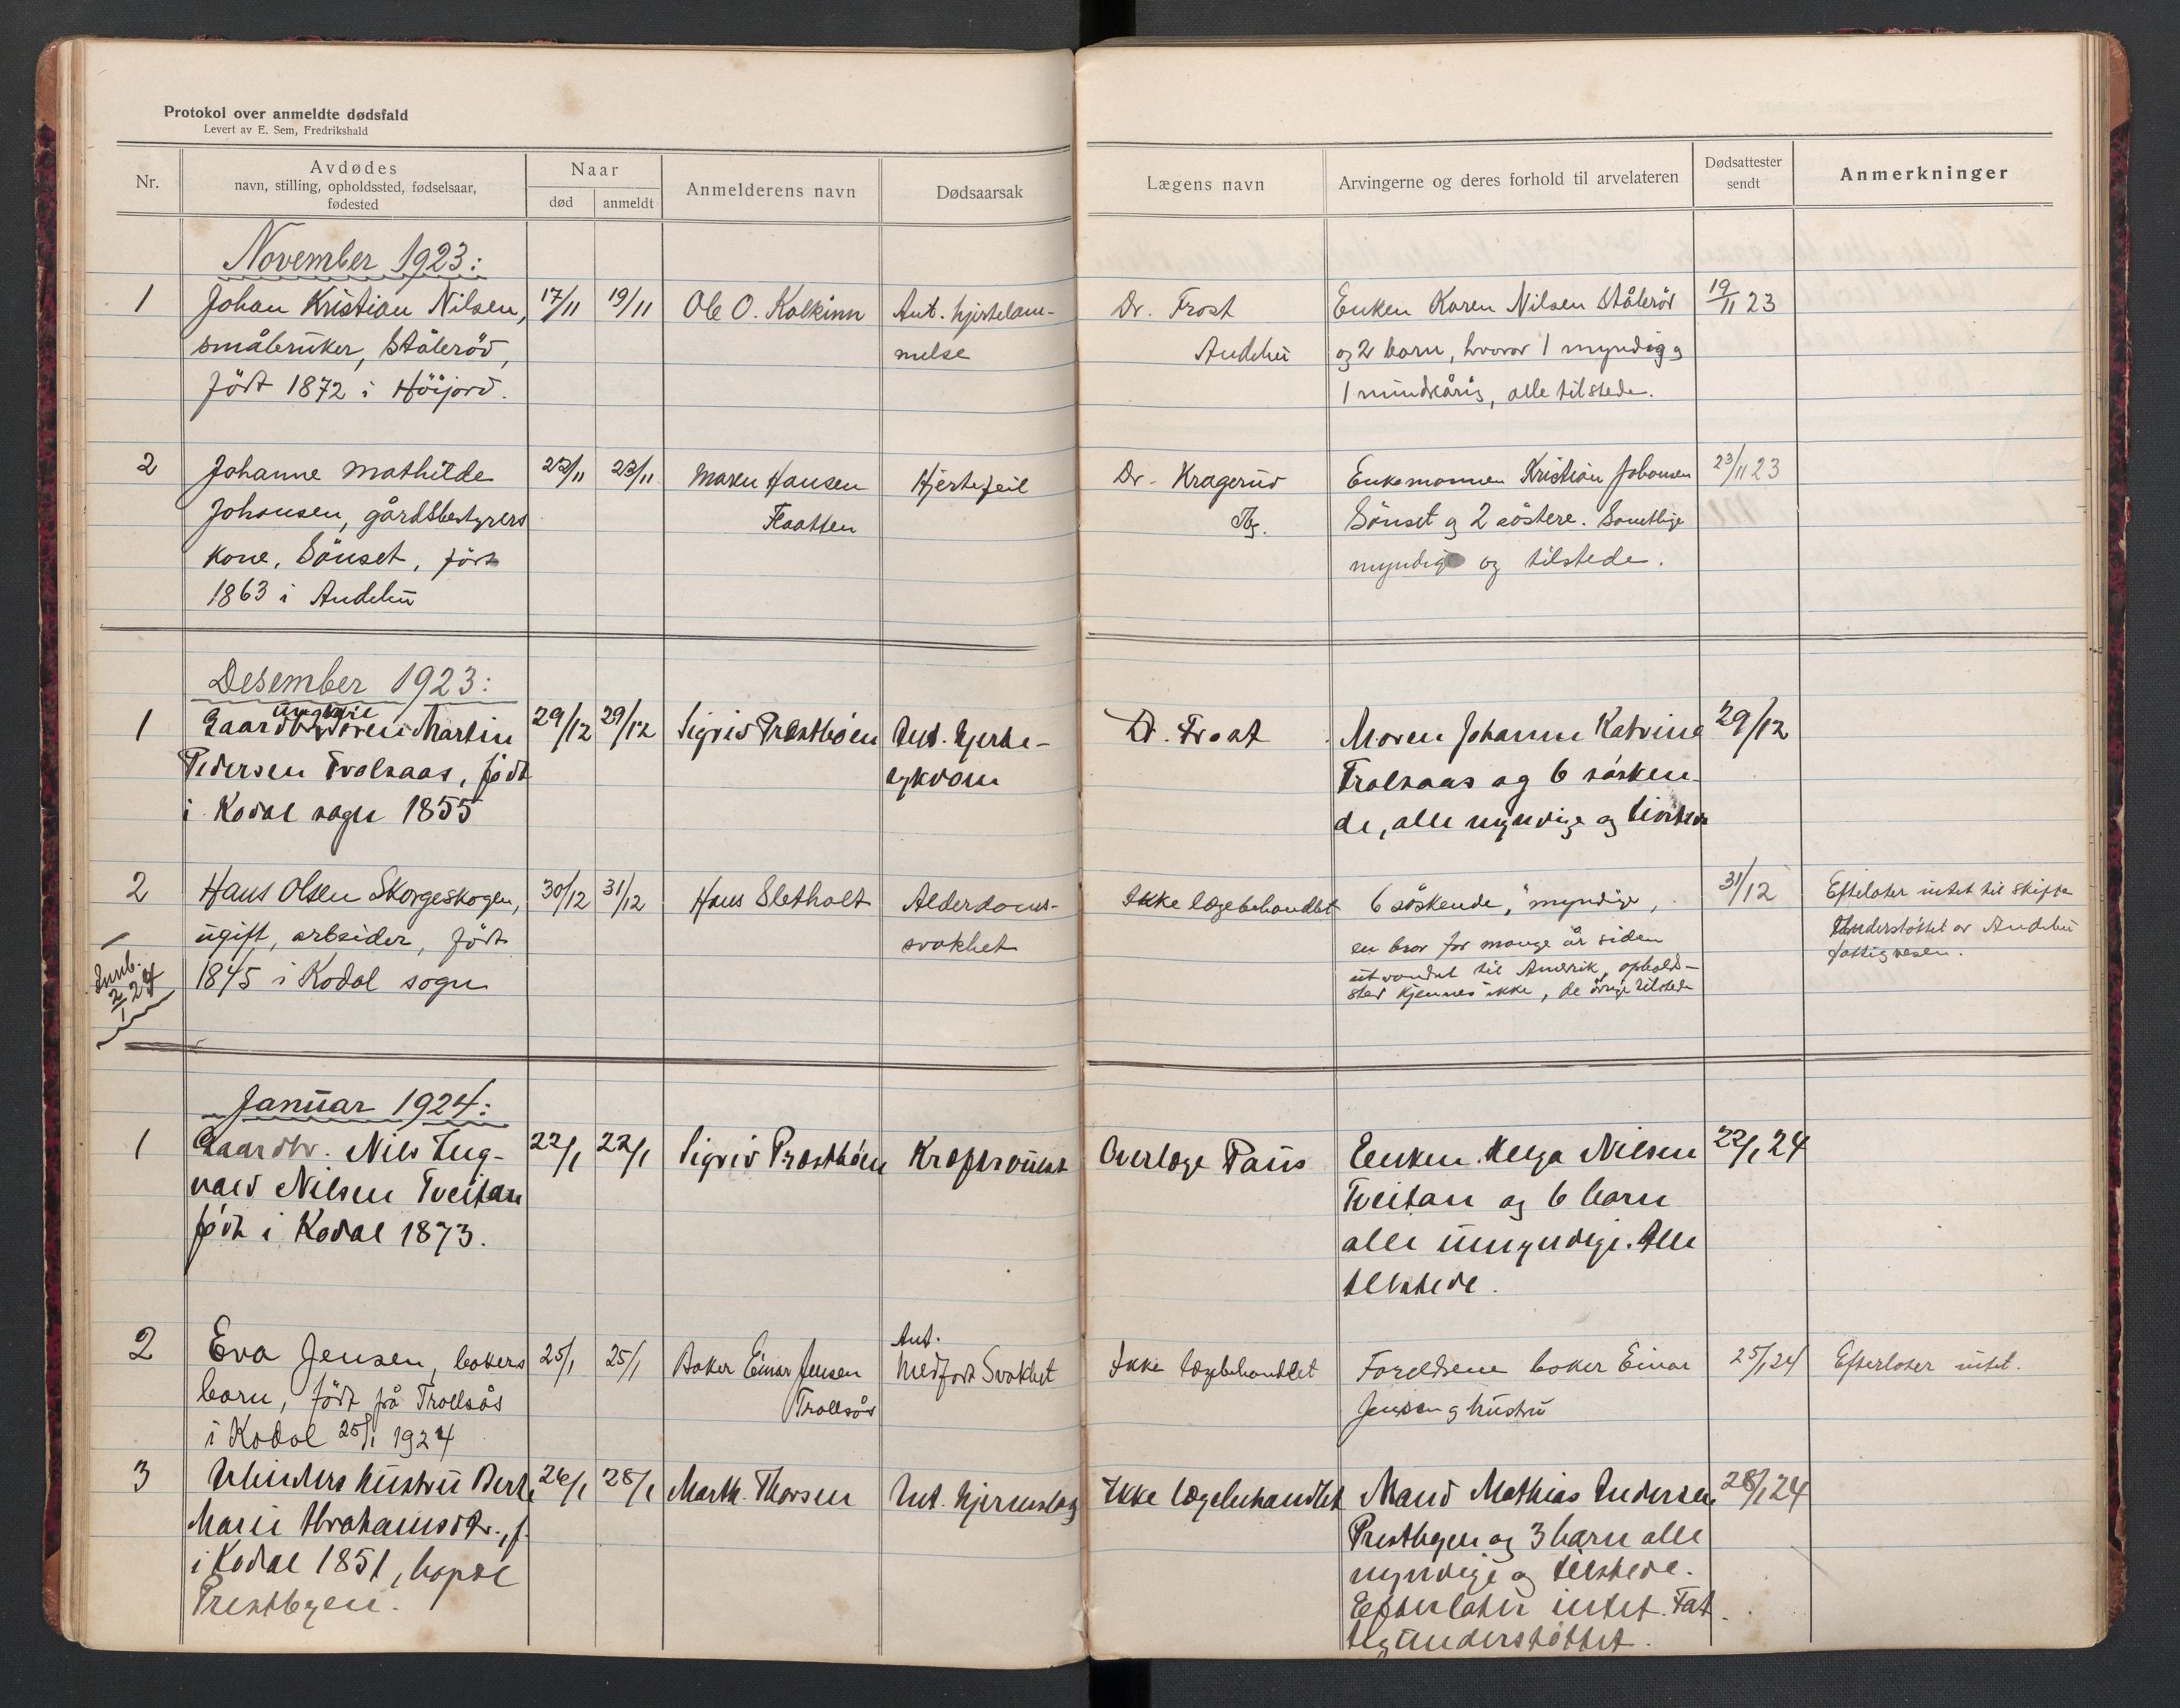 Protokol over anmeldte dødsfald
Levert av E. Sem, Fredrikshald
Nr.
Avdødes
navn, stilling, opholdssted, fødselsaar,
fødested
Naar
død
anmeldt
Anmelderens navn
Dødsaarsak
Lægens navn
Arvingerne og deres forhold til arvelateren
Dødsattester
sendt
Anmerkninger
November 1923:
1
Johan Kristian Nilsen,
småbruker, Ståleröd,
födt 1872 i Höijord.
17/11
19/11
Ole O. Kolkinn
Ant. hjertelam-
melse
Dr. Frost
Andebu
Enken Karen Nilsen Ståleröd
og 2 barn, hvorav 1 myndig og
1 mindreårig, alle tilstede.
19/11 23
2
Johanne Mathilde
Johansen, gårdsbestyrers
kone, Sönset, födt
1863 i Andebu
22/11
23/11
Maren Hansen
Flaatten
Hjertefeil
Dr. Kragerud
Tbg.
Enkemannen Kristian Johansen
Sönset og 2 söstere. Samtlige
myndige og tilstede.
23/11 23
Desember 1923:
1
ungkarl
Gaardbr. Sören Martin
Pedersen Trolsaas, födt
i Kodal sogn 1855
29/12
29/12
Sigvid Prestbøen
Ant. hjerte-
sykdom
Dr. Frost
Moren Johanne Katrine
Trolsaas og 6 søsken-
de, alle myndige og tilstede
29/12
2
Hans Olsen Skorgeskogen,
ugift, arbeider, födt
1845 i Kodal sogn
30/12
31/12
Hans Sletholt
Alderdoms-
svakhet
Ikke lægebehandlet
6 söskende, myndige,
en bror for mange år siden
utvandret til Amerik, opholds-
sted kjennes ikke, de övrige tilstede
31/12
Efterlater intet til skifte
Understöttet av Andebu
fattigvesen.
Innb.
2/1 24
Januar 1924:
1
Gaardbr. Nils Ing-
vald Nilsen Tveitan
född i Kodal 1873.
22/1
22/1
Sigvid Prestbøen
Kræftsvulst
Overlæge Paus
Enken Helga Nilsen
Tveitan og 6 barn
alle umyndige. Alle
tilstede.
22/1 24
2
Eva Jensen, bakers
barn, födt på Trollsås
i Kodal 25/1 1924
25/1
25/1
Baker Einar Jensen
Trollsås
Ant.
Medfödt Svakhet
Ikke lægebehandlet
Foreldrene baker Einar
Jensen og hustru
25/1 24
Efterlater intet.
3
Arbeiders hustru Berte
Marie Abrahamsdtr., f.
i Kodal 1851, bopæl
Prestbyen.
26/1
28/1
Marth. Thorsen
Ant. hjerneslag
Ikke lægebehandlet
Mand Mathias Andersen
Prestbyen og 3 barn alle
myndige og tilstede.
Efterlater intet. Fat-
tigunderstøttet.
28/1 24